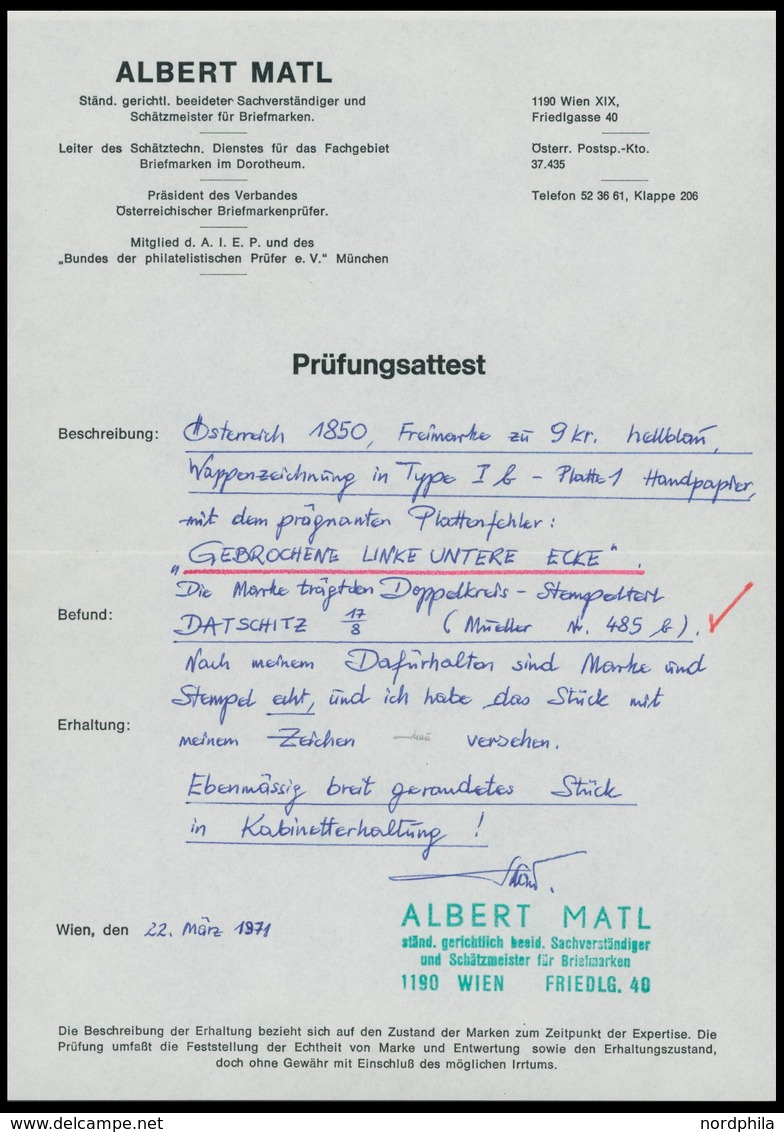 ALBERT MATL
Ständ. gerichtl. beeideter Sachverständiger und
Schätzmeister für Briefmarken.
Leiter des Schätztechn. Dienstes für das Fachgebiet
Briefmarken im Dorotheum.
Präsident des Verbandes
Österreichischer Briefmarkenprüfer.
Mitglied d. A. I. E. P. und des
„Bundes der philatelistischen Prüfer e. V.“ München
1190 Wien XIX,
Friedlgasse 40
Österr. Postsp.-Kto.
37.435
Telefon 52 36 61, Klappe 206
Prüfungsattest
Beschreibung: Österreich 1850, Freimarke zu 9 kr. hellblau,
Wappenzeichnung in Type I b - Platte 1 Handpapier,
mit dem prägnanten Plattenfehler:
„GEBROCHENE LINKE UNTERE ECKE“.
Die Marke trägt den Doppelkreis-Stempelteil
Befund: DATSCHITZ 17/8 (Mueller Nr. 485 b).
Nach meinem Dafürhalten sind Marke und
Stempel echt, und ich habe das Stück mit
Erhaltung: meinem Zeichen versehen.
Ebenmässig breit gerandetes Stück
in Kabinetterhaltung!
Wien, den 22. März 1971
ALBERT MATL
ständ. gerichtlich beeid. Sachverständiger
und Schätzmeister für Briefmarken
1190 WIEN FRIEDLG. 40
Die Beschreibung der Erhaltung bezieht sich auf den Zustand der Marken zum Zeitpunkt der Expertise. Die
Prüfung umfaßt die Feststellung der Echtheit von Marke und Entwertung sowie den Erhaltungszustand,
doch ohne Gewähr mit Einschluß des möglichen Irrtums.
www.delcampe.net
nordphila